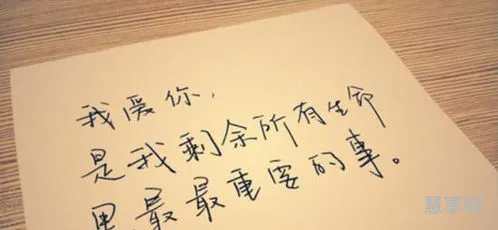 我爱你，
是我剩余所有生命
里最最重要的事。
慧享网